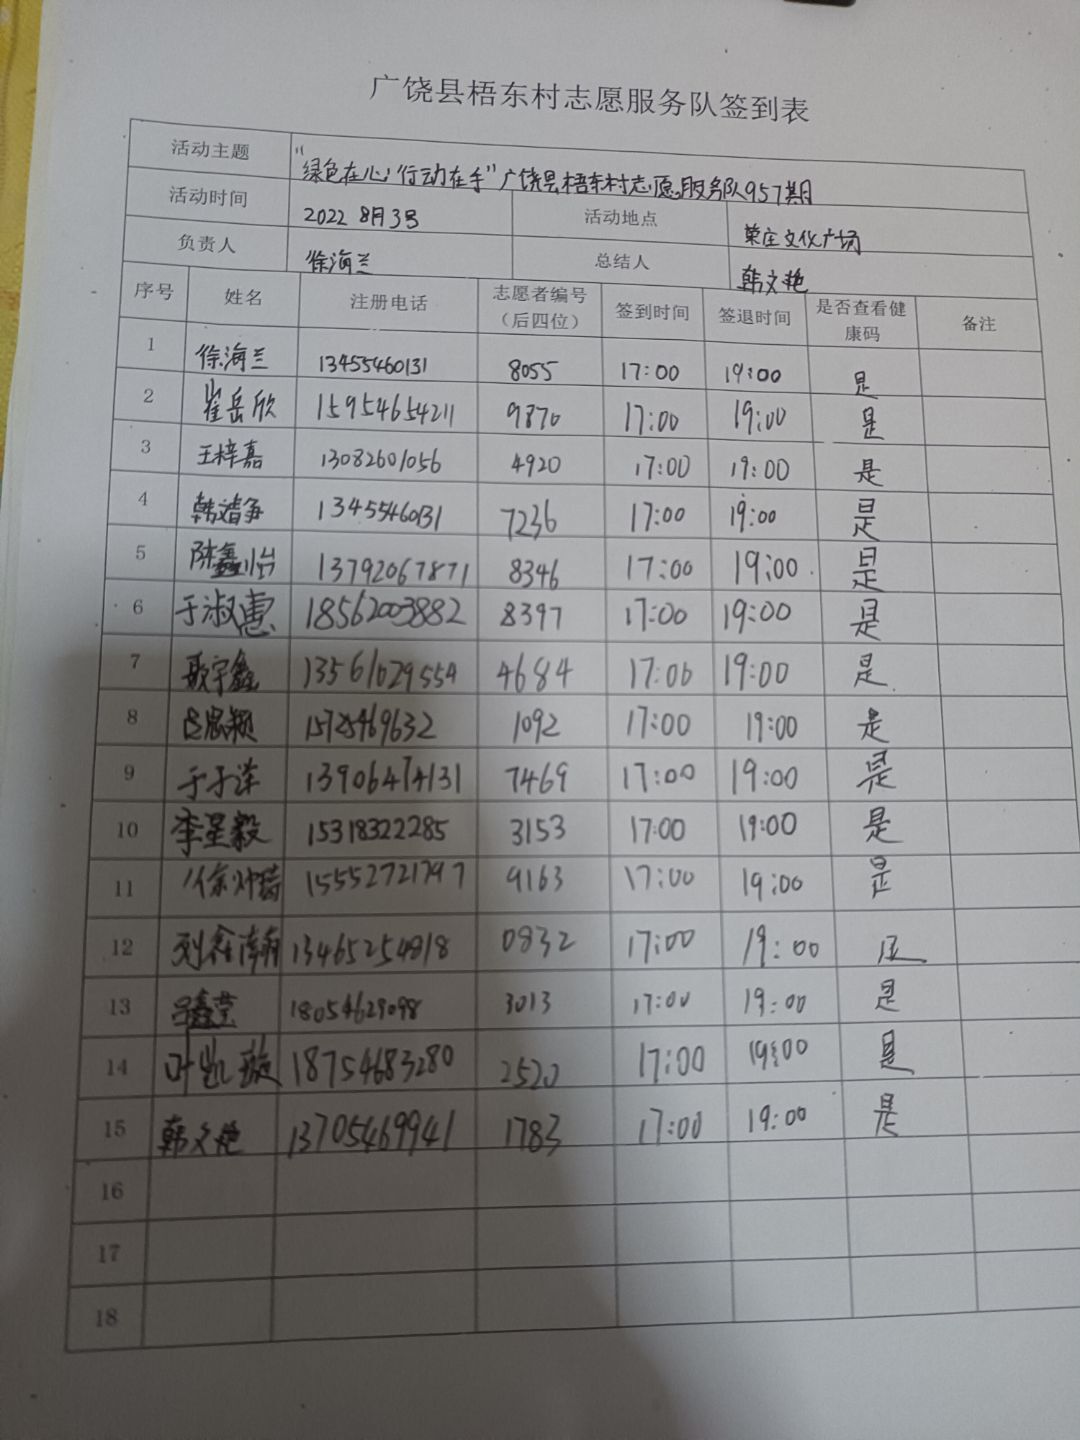 广饶县梧东村志愿服务队签到表
活动主题 "绿色在心,行动在手"广饶县梧东村志愿服务队957期
活动时间 2022 8月3号 活动地点 荣庄文化广场
负责人 徐海兰 总结人 韩文艳
序号 姓名 注册电话 志愿者编号(后四位) 签到时间 签退时间 是否查看健康码 备注
1 徐海兰 13455460131 8055 17:00 19:00 是
2 崔岳欣 15954654211 9870 17:00 19:00 是
3 王梓嘉 13082601056 4920 17:00 19:00 是
4 韩靖争 13455460131 7236 17:00 19:00 是
5 陈鑫怡 13792067871 8346 17:00 19:00 是
6 于淑惠 18562003882 8397 17:00 19:00 是
7 耿宇鑫 13561029554 4684 17:00 19:00 是
8 吕思颖 15725469632 1092 17:00 19:00 是
9 于子洋 13906474131 7469 17:00 19:00 是
10 李星毅 15318322285 3153 17:00 19:00 是
11 15552721797 9163 17:00 19:00 是
12 13465254818 0832 17:00 19:00
13 18054629098 3013 17:00 19:00 是
14 叶凯璇 18754683280 2520 17:00 19:00 是
15 韩文艳 13705469941 1783 17:00 19:00 是
16
17
18